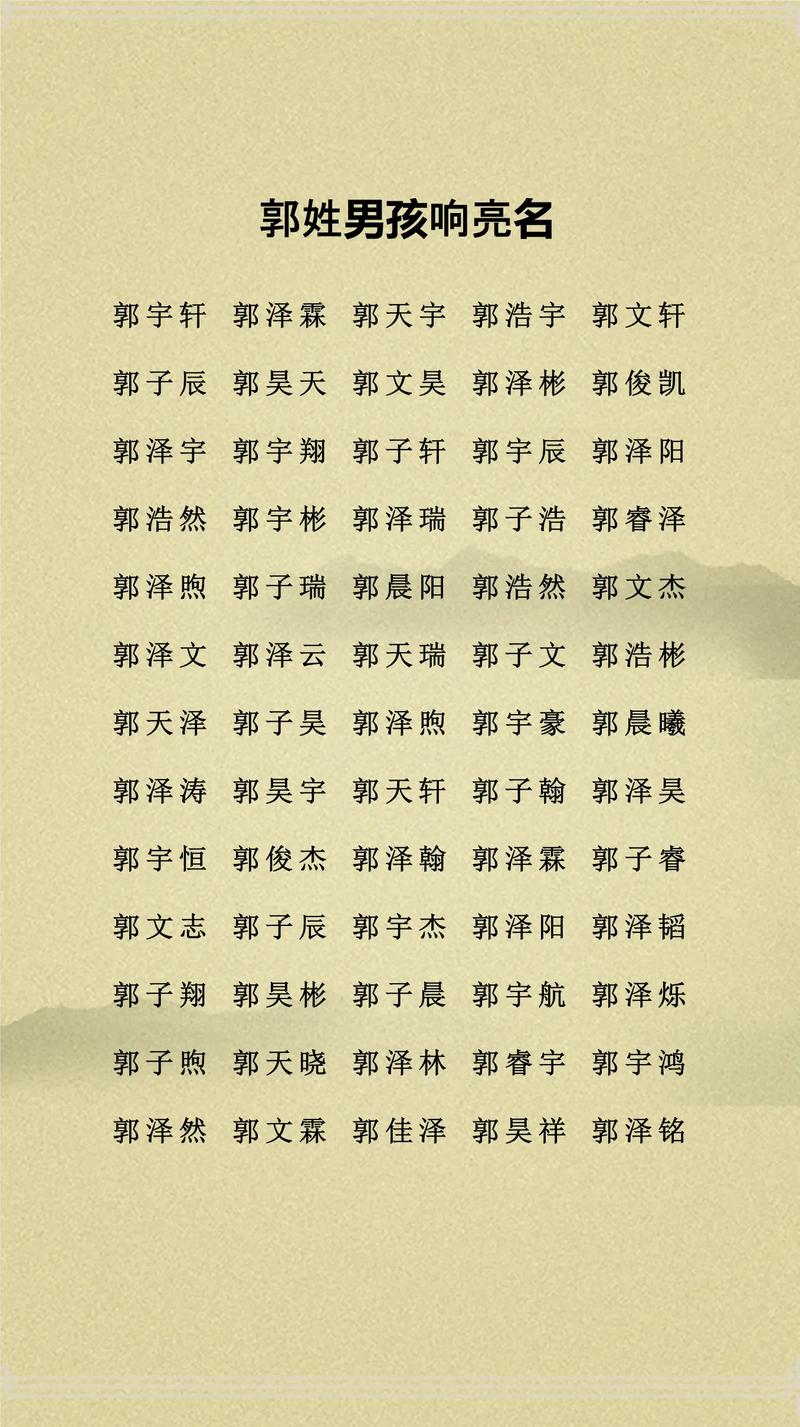 郭姓男孩响亮名
郭宇轩 郭泽霖 郭天宇 郭浩宇 郭文轩
郭子辰 郭昊天 郭文昊 郭泽彬 郭俊凯
郭泽宇 郭宇翔 郭子轩 郭宇辰 郭泽阳
郭浩然 郭宇彬 郭泽瑞 郭子浩 郭睿泽
郭泽煦 郭子瑞 郭晨阳 郭浩然 郭文杰
郭泽文 郭泽云 郭天瑞 郭子文 郭浩彬
郭天泽 郭子昊 郭泽煦 郭宇豪 郭晨曦
郭泽涛 郭昊宇 郭天轩 郭子翰 郭泽昊
郭宇恒 郭俊杰 郭泽翰 郭泽霖 郭子睿
郭文志 郭子辰 郭宇杰 郭泽阳 郭泽韬
郭子翔 郭昊彬 郭子晨 郭宇航 郭泽烁
郭子煦 郭天晓 郭泽林 郭睿宇 郭宇鸿
郭泽然 郭文霖 郭佳泽 郭昊祥 郭泽铭